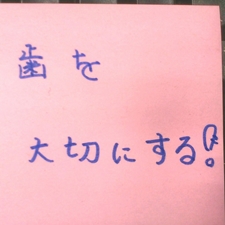 歯を
大切にする!